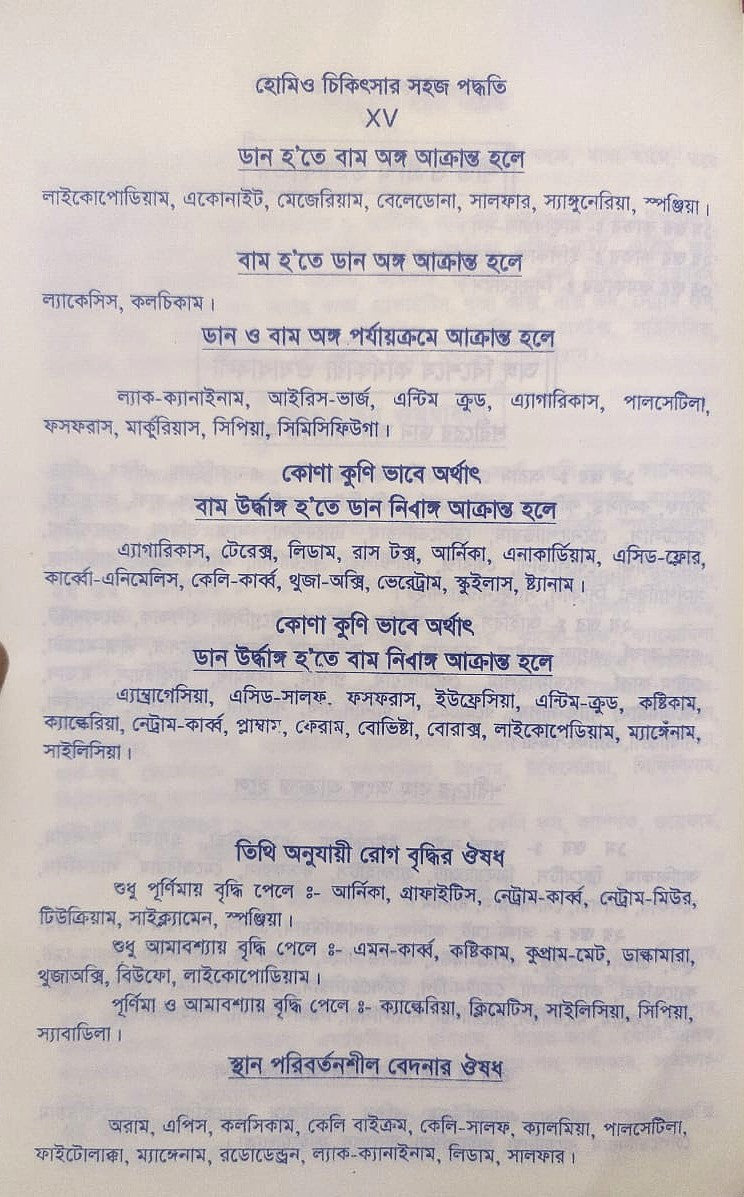 হোমিও চিকিৎসার সহজ পদ্ধতি
XV
ডান হ'তে বাম অঙ্গ আক্রান্ত হলে
লাইকোপোডিয়াম, একোনাইট, মেজেরিয়াম, বেলেডোনা, সালফার, স্যাঙ্গুনেরিয়া, স্পঞ্জিয়া।
বাম হ'তে ডান অঙ্গ আক্রান্ত হলে
ল্যাকেসিস, কলচিকাম।
ডান ও বাম অঙ্গ পর্যায়ক্রমে আক্রান্ত হলে
ল্যাক-ক্যানাইনাম, আইরিস-ভার্জ, এন্টিম ক্রুড, এ্যাগারিকাস, পালসেটিলা,
ফসফরাস, মার্কুরিয়াস, সিপিয়া, সিমিসিফিউগা।
কোণা কুণি ভাবে অর্থাৎ
বাম উর্দ্ধাঙ্গ হ'তে ডান নিবাঙ্গ আক্রান্ত হলে
এ্যাগারিকাস, টেরেক্স, লিডাম, রাস টক্স, আর্নিকা, এনাকার্ডিয়াম, এসিড-ফ্লোর,
কার্ব্বো-এনিমেলিস, কেলি-কার্ব্ব, থুজা-অক্সি, ভেরেট্রাম, স্কুইলাস, ষ্ট্যানাম।
কোণা কুণি ভাবে অর্থাৎ
ডান উর্দ্ধাঙ্গ হ'তে বাম নিবাঙ্গ আক্রান্ত হলে
এ্যাম্ব্রাগেসিয়া, এসিড-সালফ. ফসফরাস, ইউফ্রেসিয়া, এন্টিম-ক্রুড, কষ্টিকাম,
ক্যাল্কেরিয়া, নেট্রাম-কার্ব্ব, প্লাম্বাগ, ফেরাম, বোভিষ্টা, বোরাক্স, লাইকোপেডিয়াম, ম্যাঙ্গেঁনাম,
সাইলিসিয়া।
তিথি অনুযায়ী রোগ বৃদ্ধির ঔষধ
শুধু পূর্ণিমায় বৃদ্ধি পেলে ঃ- আর্নিকা, গ্রাফাইটিস, নেট্রাম-কার্ব্ব, নেট্রাম-মিউর,
টিউক্রিয়াম, সাইক্ল্যামেন, স্পঞ্জিয়া।
শুধু আমাবশ্যায় বৃদ্ধি পেলে ঃ- এমন-কার্ব্ব, কষ্টিকাম, কুপ্রাম-মেট, ডাল্কামারা,
থুজাঅক্সি, বিউফো, লাইকোপোডিয়াম।
পূর্ণিমা ও আমাবশ্যায় বৃদ্ধি পেলে ঃ- ক্যাল্কেরিয়া, ক্লিমেটিস, সাইলিসিয়া, সিপিয়া,
স্যাবাডিলা।
স্থান পরিবর্তনশীল বেদনার ঔষধ
অরাম, এপিস, কলসিকাম, কেলি বাইক্রম, কেলি-সালফ, ক্যালমিয়া, পালসেটিলা,
ফাইটোলাক্কা, ম্যাঙ্গেনাম, রডোডেন্ড্রন, ল্যাক-ক্যানাইনাম, লিডাম, সালফার।